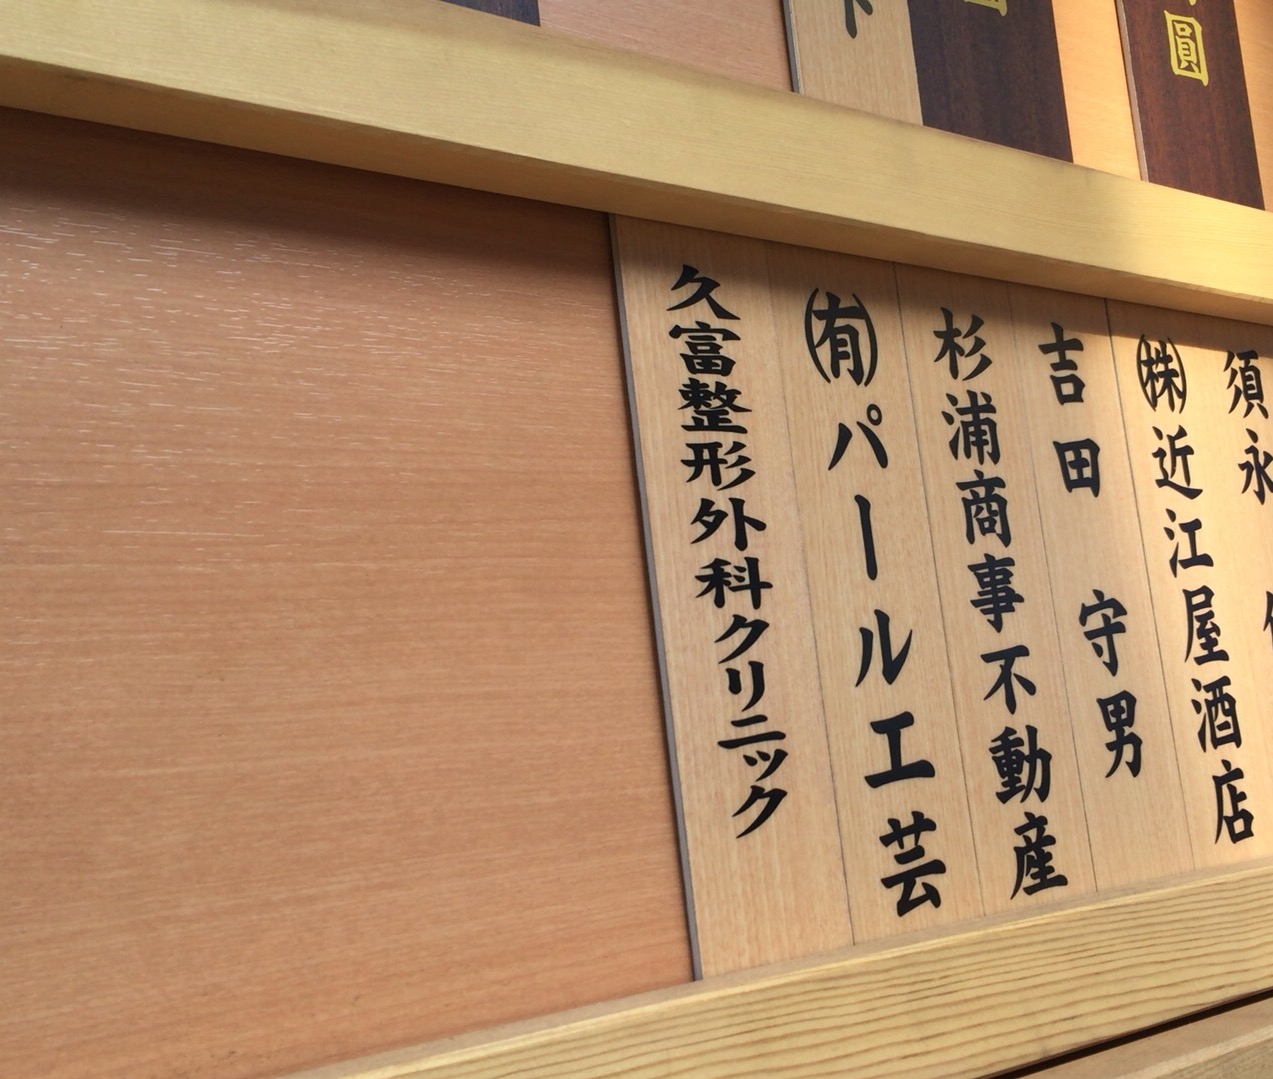 圓
須永
㈱近江屋酒店
吉田守男
杉浦商事不動産
㈲パール工芸
久富整形外科クリニック